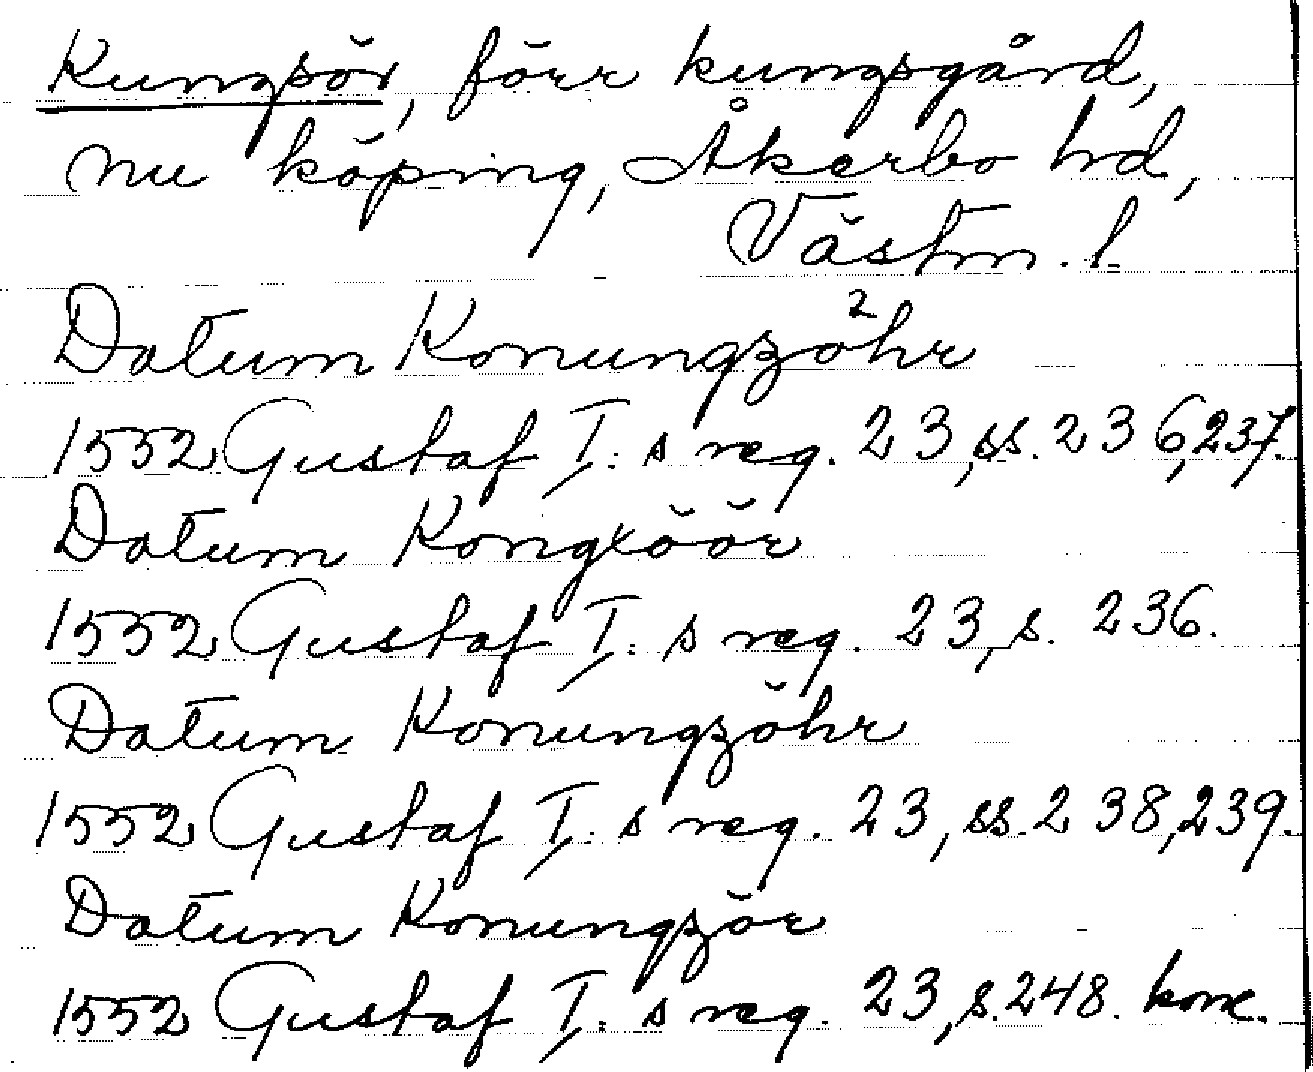 Kungsör, förr kungsgård,
nu köping, Åkerbo hd,
Västm. l.
Datum Konungzöhr 2
1552 Gustaf I: s reg. 23, ss. 236, 237.
Datum Kongxöör
1552 Gustaf I: s reg. 23, s. 236.
Datum Konungzöhr
1552 Gustaf I: s reg. 23, ss. 238, 239.
Datum Konungzör
1552 Gustaf I: s reg. 23, s. 248. konc.